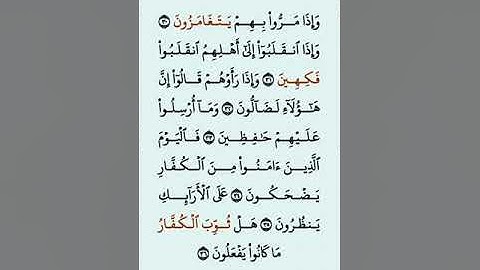 وَإِذَا مَرُّوا۟ بِهِمْ يَتَغَامَزُونَ ٣٠
وَإِذَا ٱنقَلَبُوٓا۟ إِلَىٰٓ أَهْلِهِمُ ٱنقَلَبُوا۟
فَكِهِينَ ٣١ وَإِذَا رَأَوْهُمْ قَالُوٓا۟ إِنَّ
هَٰٓؤُلَآءِ لَضَآلُّونَ ٣٢ وَمَآ أُرْسِلُوا۟
عَلَيْهِمْ حَٰفِظِينَ ٣٣ فَٱلْيَوْمَ
ٱلَّذِينَ ءَامَنُوا۟ مِنَ ٱلْكُفَّارِ
يَضْحَكُونَ ٣٤ عَلَى ٱلْأَرَآئِكِ
يَنظُرُونَ ٣٥ هَلْ ثُوِّبَ ٱلْكُفَّارُ
مَا كَانُوا۟ يَفْعَلُونَ ٣٦